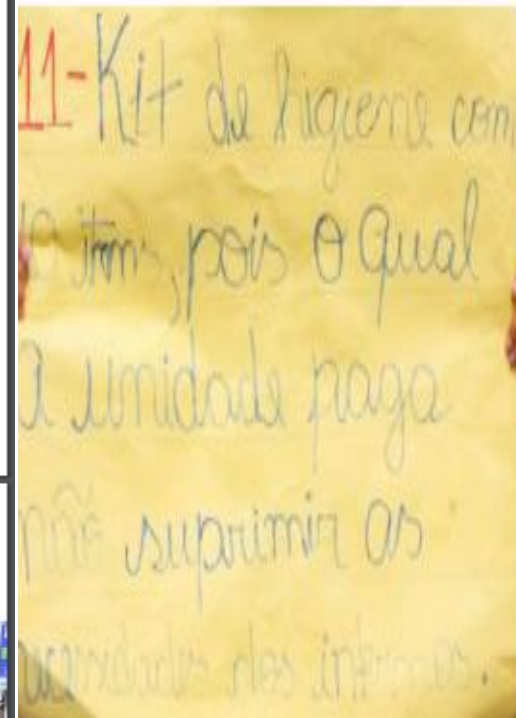 11-Kit de higiene com
itens, pois o qual
a unidade paga
não suprimir as
necessidades dos internos.